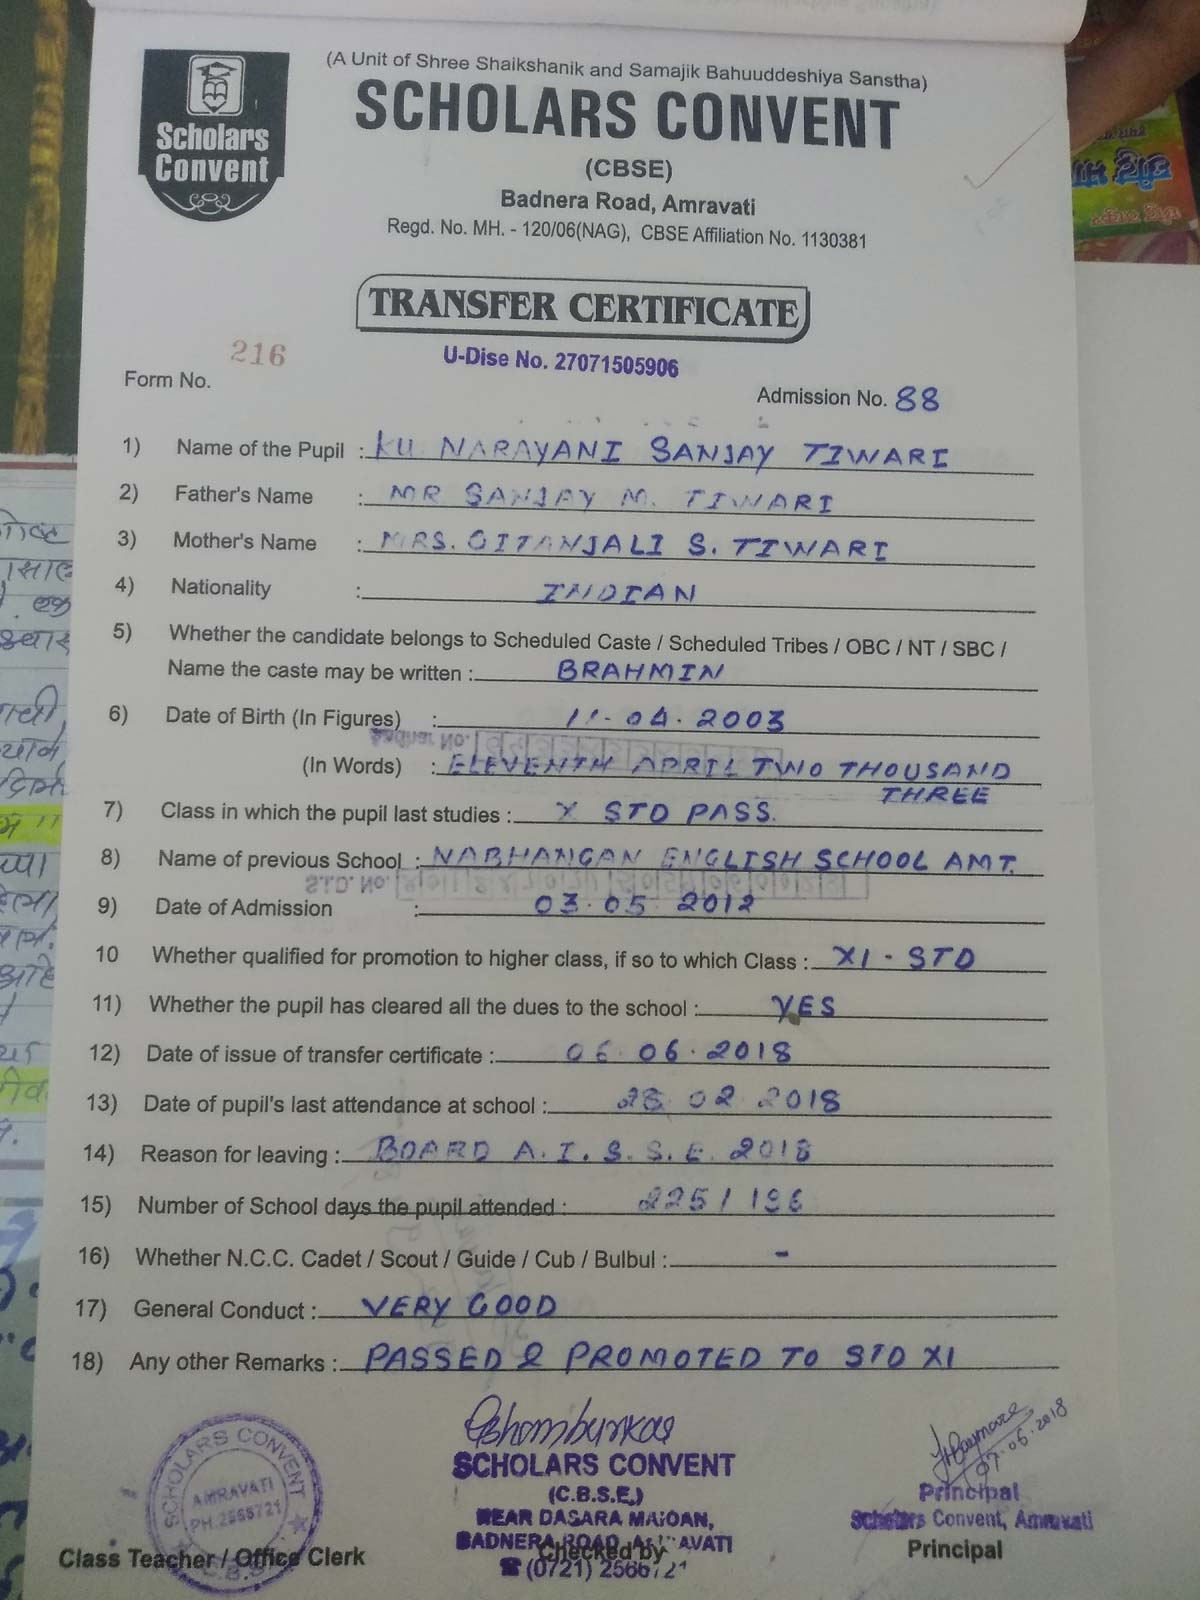 (A Unit of Shree Shaikshanik and Samajik Bahuuddeshiya Sanstha)
SCHOLARS CONVENT
Scholars
Convent
(CBSE)
Badnera Road, Amravati
Regd. No. MH. - 120/06(NAG), CBSE Affiliation No. 1130381
TRANSFER CERTIFICATE
216
U-Dise No. 27071505906
Form No.
Admission No. 88
1) Name of the Pupil : KU NARAYANI SANJAY TIWARI
2) Father's Name : MR SANJAY M. TIWARI
3) Mother's Name : MRS. GITANJALI S. TIWARI
4) Nationality : INDIAN
5) Whether the candidate belongs to Scheduled Caste / Scheduled Tribes / OBC / NT / SBC /
Name the caste may be written : BRAHMIN
6) Date of Birth (In Figures) : 11-04.2003
(In Words) : ELEVENTH APRIL TWO THOUSAND
THREE
7) Class in which the pupil last studies : X STD PASS.
8) Name of previous School : NABHANGAN ENGLISH SCHOOL AMT.
9) Date of Admission : 03.05 2012
10 Whether qualified for promotion to higher class, if so to which Class : XI - STD
11) Whether the pupil has cleared all the dues to the school : YES
12) Date of issue of transfer certificate : 06.06.2018
13) Date of pupil's last attendance at school : 28 02 2018
14) Reason for leaving : BOARD A.I.S.S.E. 2018
15) Number of School days the pupil attended : 225 / 196
16) Whether N.C.C. Cadet / Scout / Guide / Cub / Bulbul : -
17) General Conduct : VERY GOOD
18) Any other Remarks : PASSED & PROMOTED TO STD XI
SCHOLARS CONVENT
AMRAVATI
PH.2566721
C.B.S.E.
SCHOLARS CONVENT
(C.B.S.E.)
NEAR DASARA MAIDAN,
BADNERA ROAD, AMRAVATI
(0721) 2566721
Principal
Scholars Convent, Amravati
Class Teacher / Office Clerk
Checked by
Principal